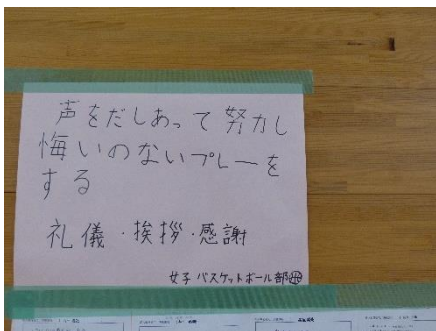 声をだしあって努力し
悔いのないプレーを
する
礼儀・挨拶・感謝
女子バスケットボール部